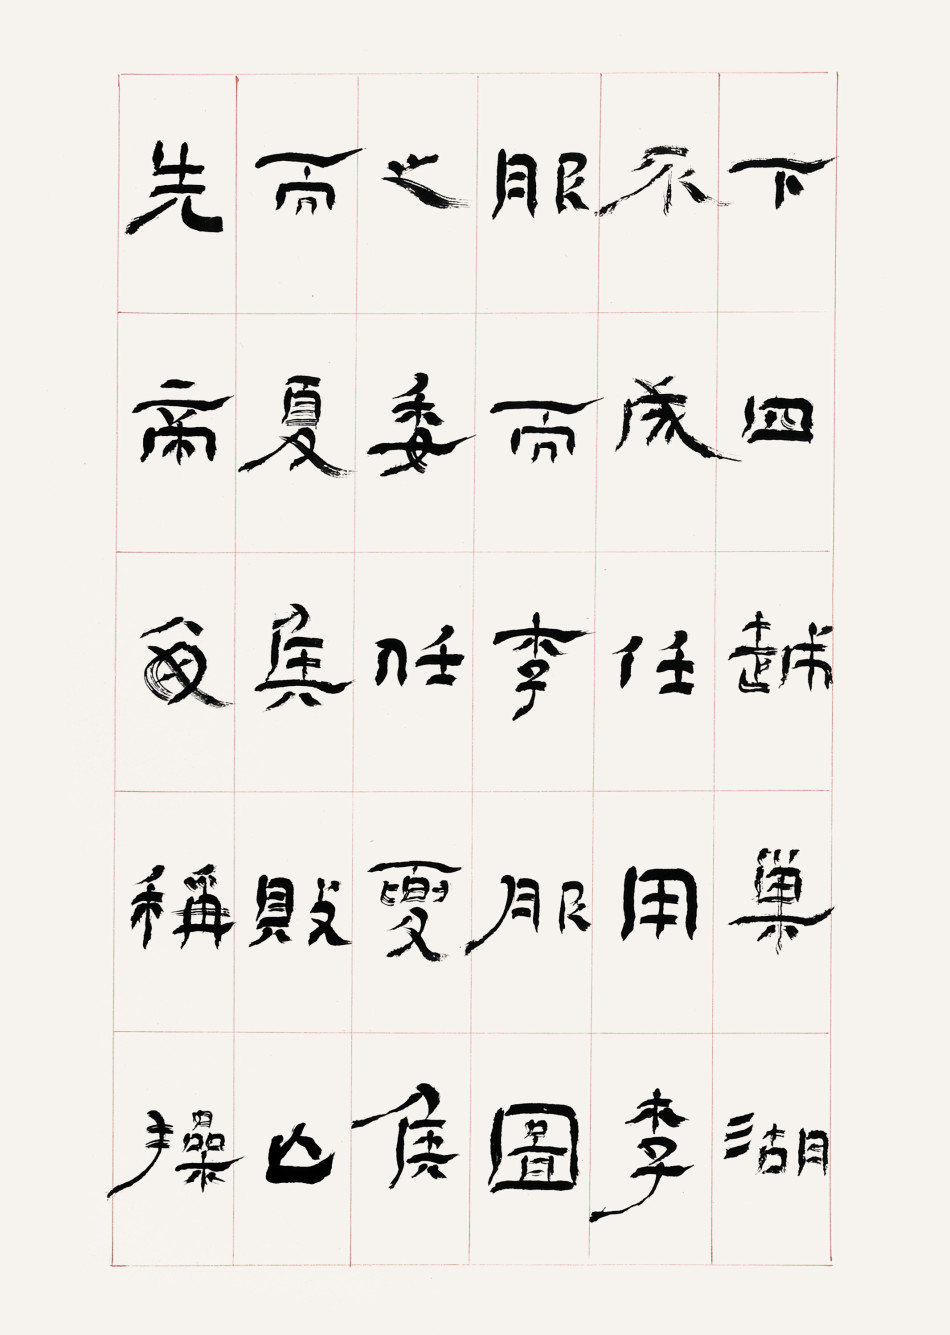 下四越巢湖
不成任用李
服而李服圖
之委任夏侯
而夏侯敗亡
先帝每稱操